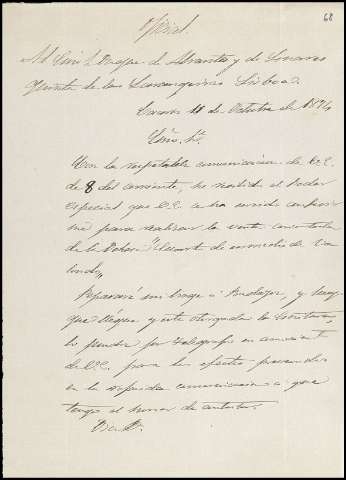 68
Oficial.
Al Exmo Sr Duque de Abrantes y de Linares
Quinta de las Laranjeiras Lisboa.
Cáceres 11 de Octubre de 1874
Exmo. Sr.
Con la respetable comunicacion de V.E.
de 8 del corriente, he recibido el Poder
especial que V.E. se ha servido
me para realizar la venta
de la Dehesa "Cuarto de enmedio de
Pasaré sin a Badajoz, y luego
que llegue y esté otorgada la Escritura
lo pondré por telégrafo en conocimiento
de V.E. para los efectos
en la respetable comunicacion a que
tengo el honor de contestar.